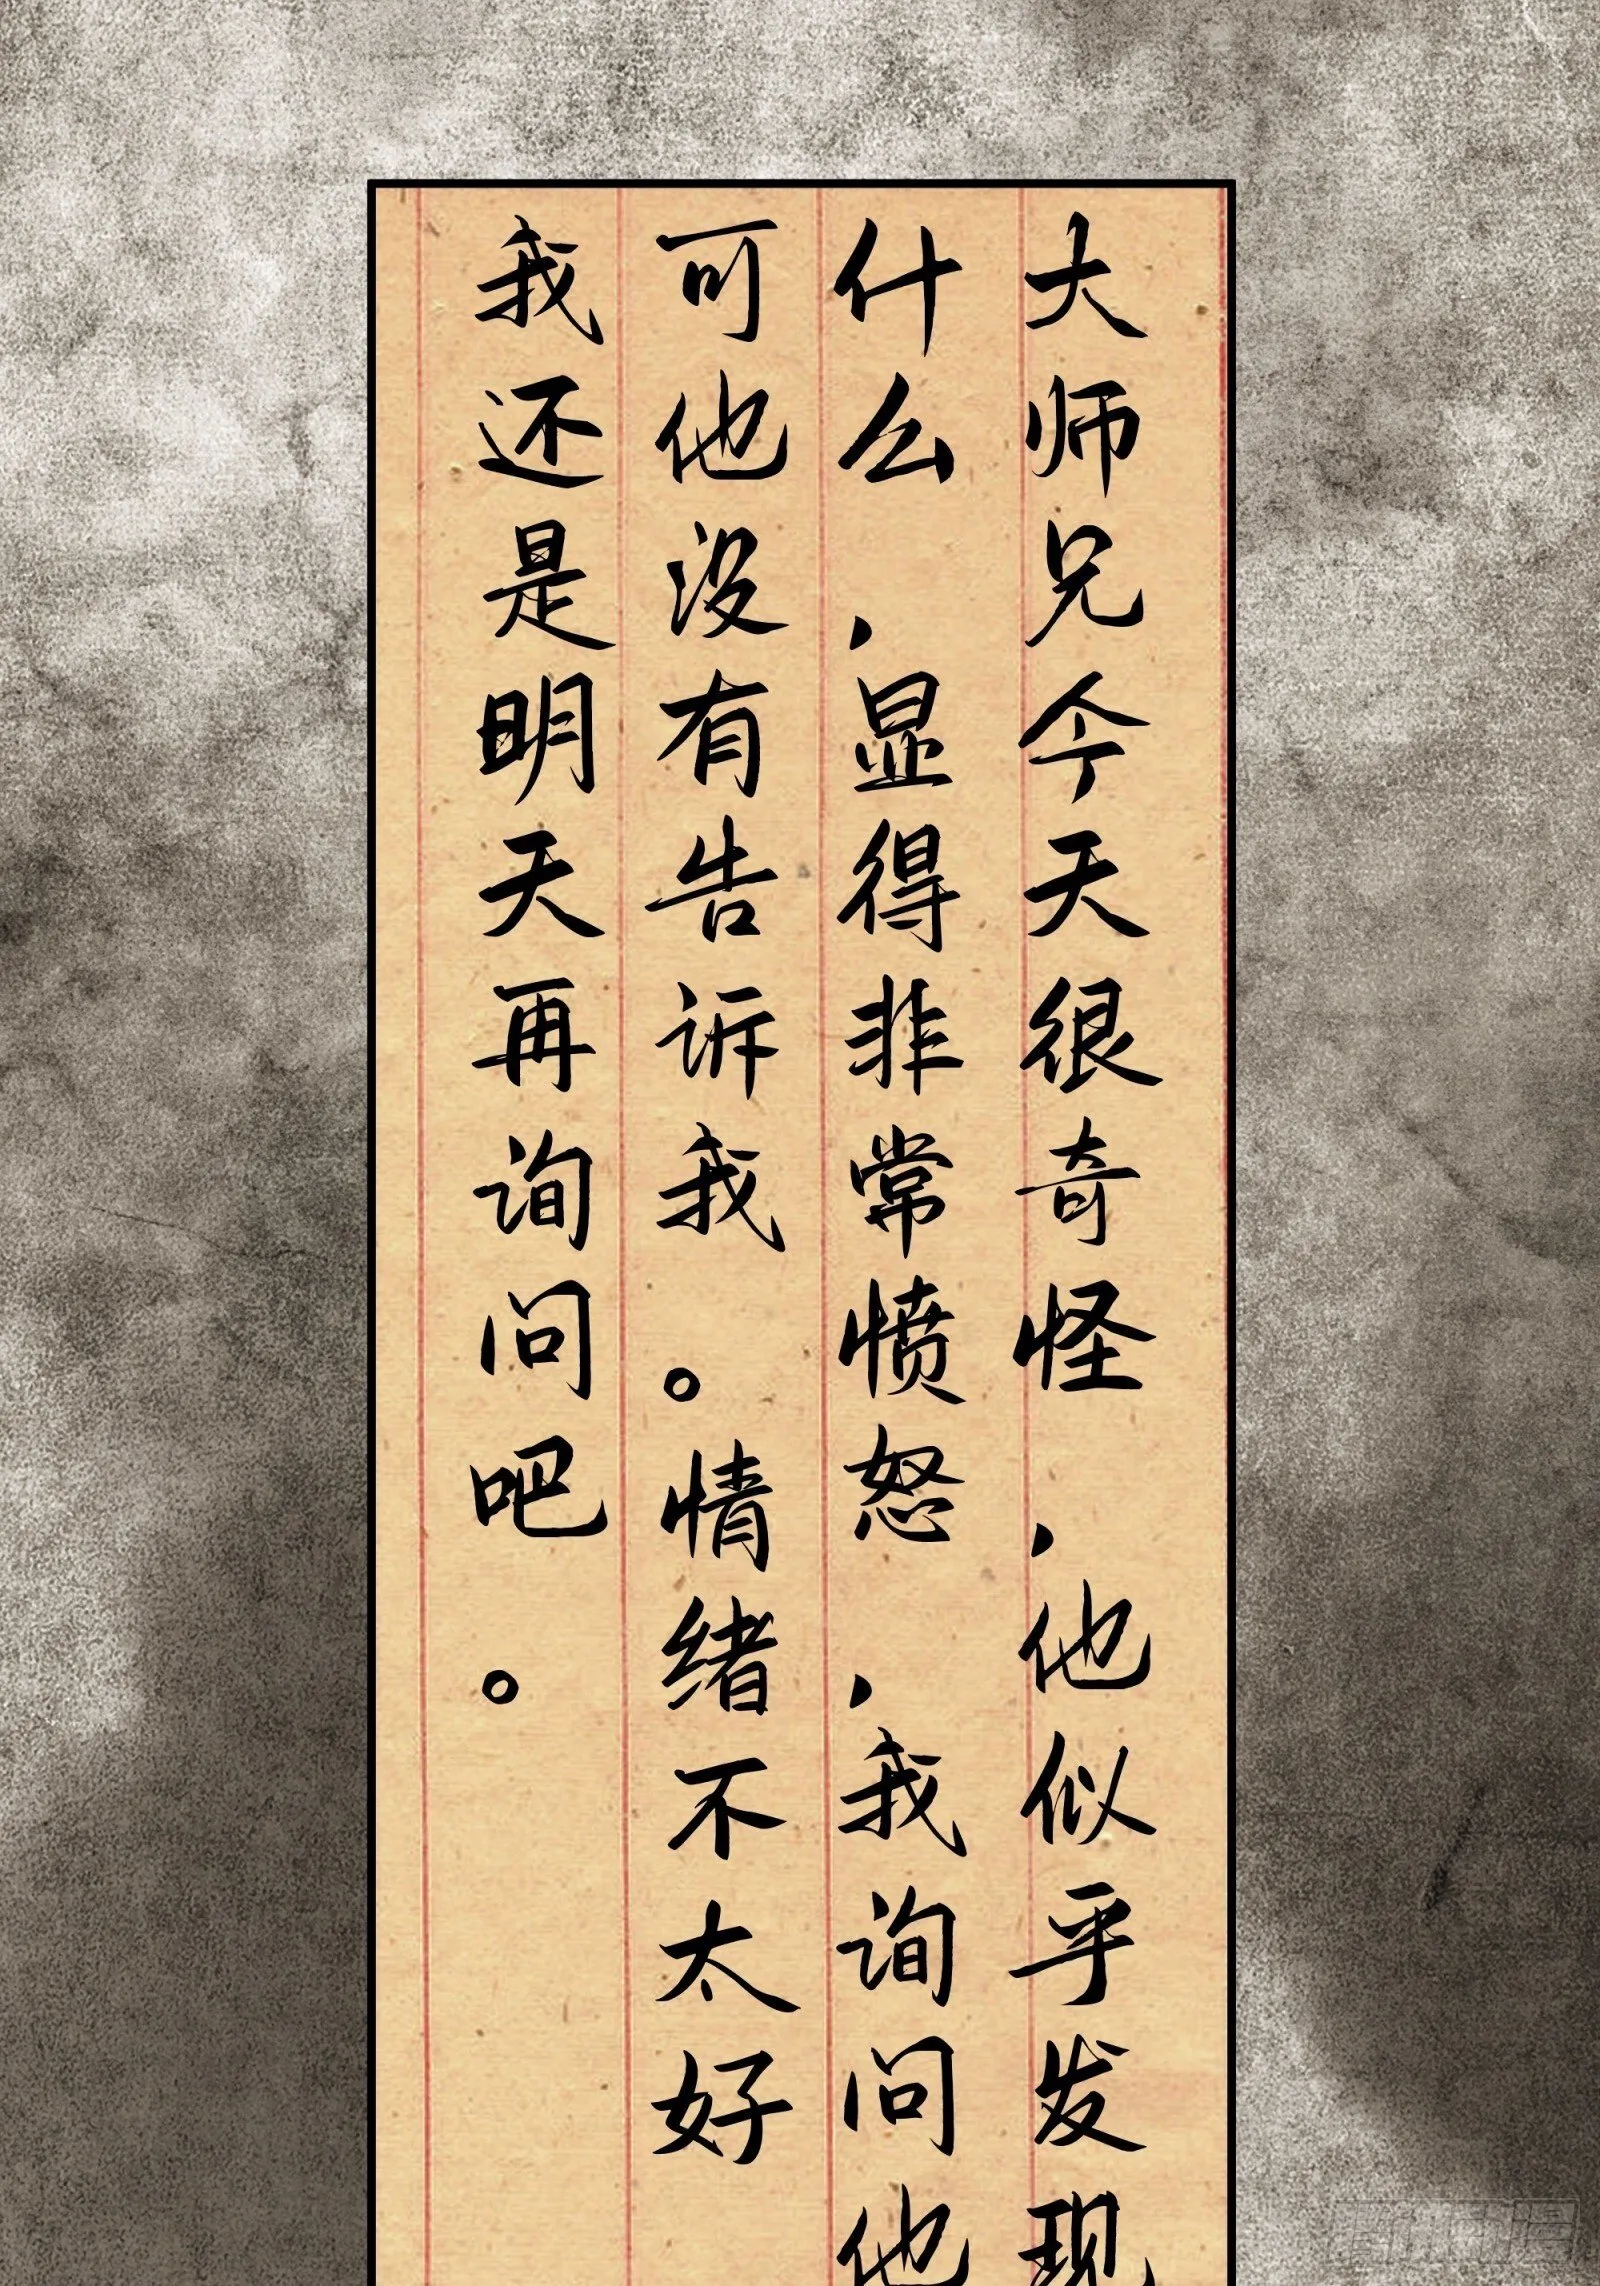 大师兄今天很奇怪,他似乎发现
什么,显得非常愤怒,我询问他
可他没有告诉我。情绪不太好
我还是明天再询问吧。